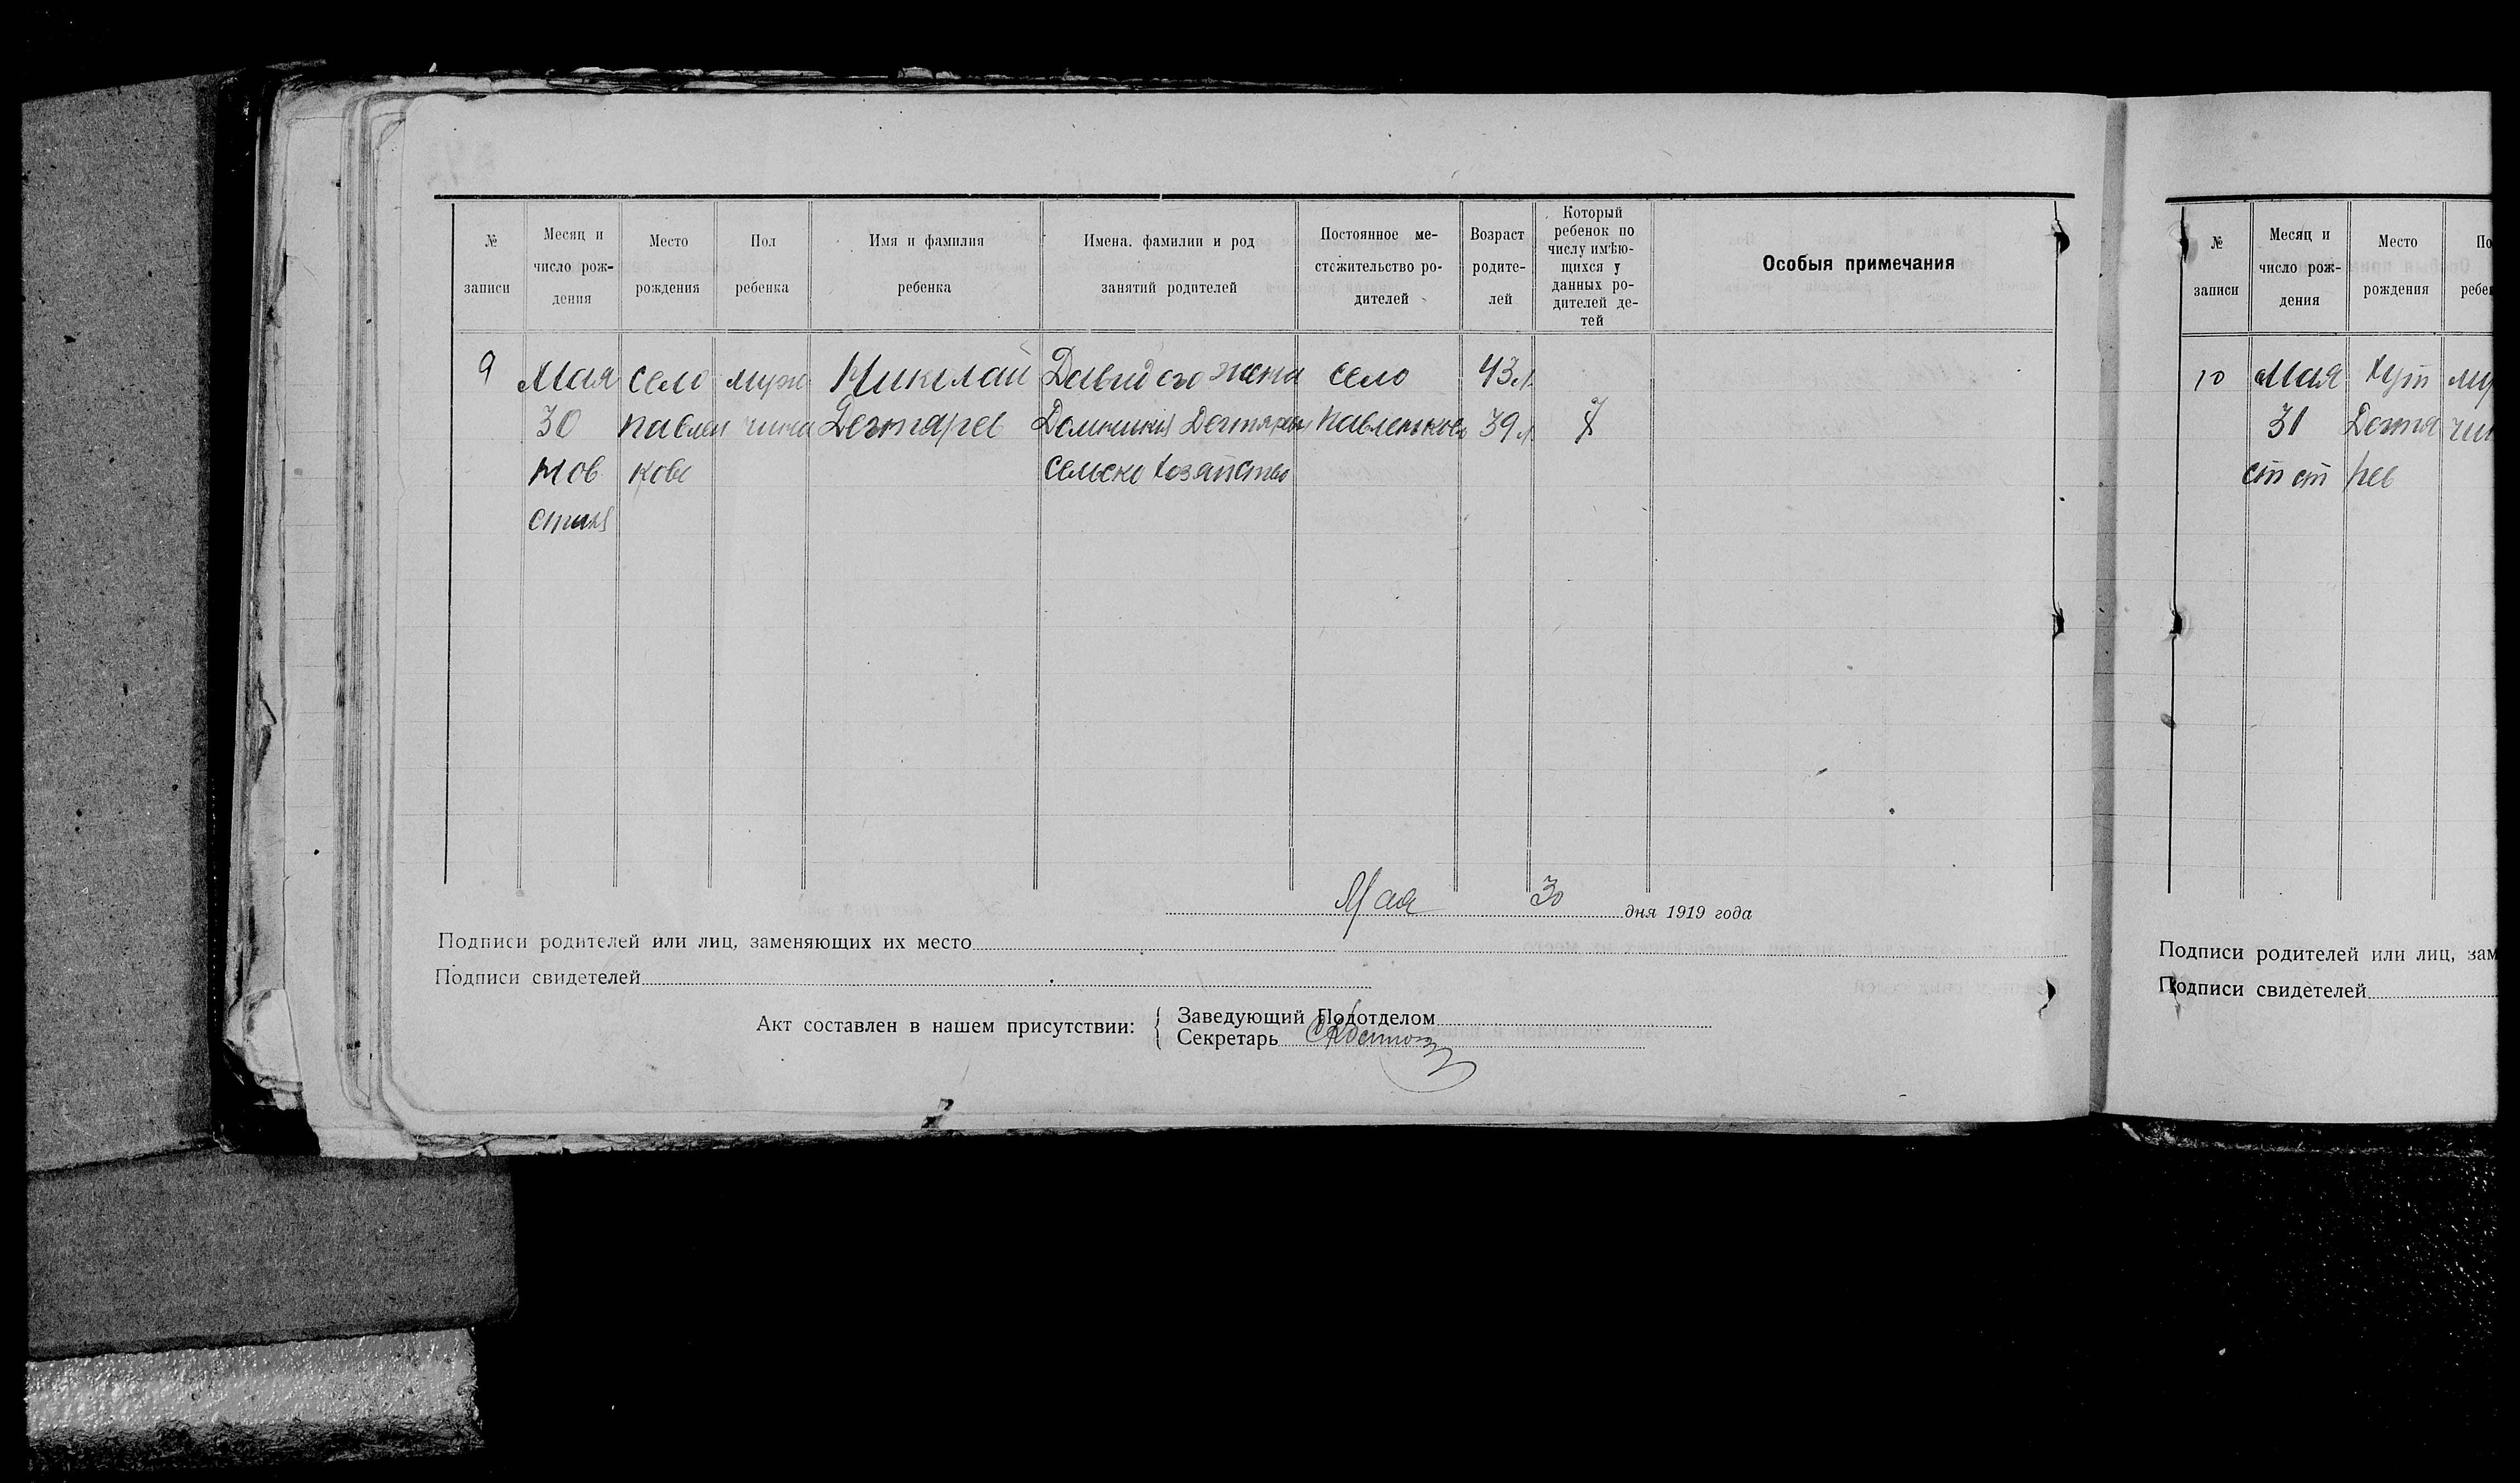 № записи
Месяц и число рож-дения
Место рождения
Пол ребенка
Имя и фамилия ребенка
Имена, фамилии и род занятий родителей
Постоянное ме-стожительство ро-дителей
Возраст родите-лей
Который ребенок по числу имѣю-щихся у данных ро-дителей де-тей
Особыя примечания
9 Мая село муж Николай Давид его жена село 43 л.
30 Павлен чина Дегтярев Домникия Дегтяревы Павленково 39 л. 7
Нов ково сельско хозяйство
стиля
Мая 30 дня 1919 года
Подписи родителей или лиц, заменяющих их место
Подписи свидетелей
Акт составлен в нашем присутствии:
Заведующий Подотделом
Секретарь
№ записи
Месяц и число рож-дения
Место рождения
По ребе
10 Мая Хут му
31 Дегтя чи
ст ст рев
Подписи родителей или лиц, зам
Подписи свидетелей